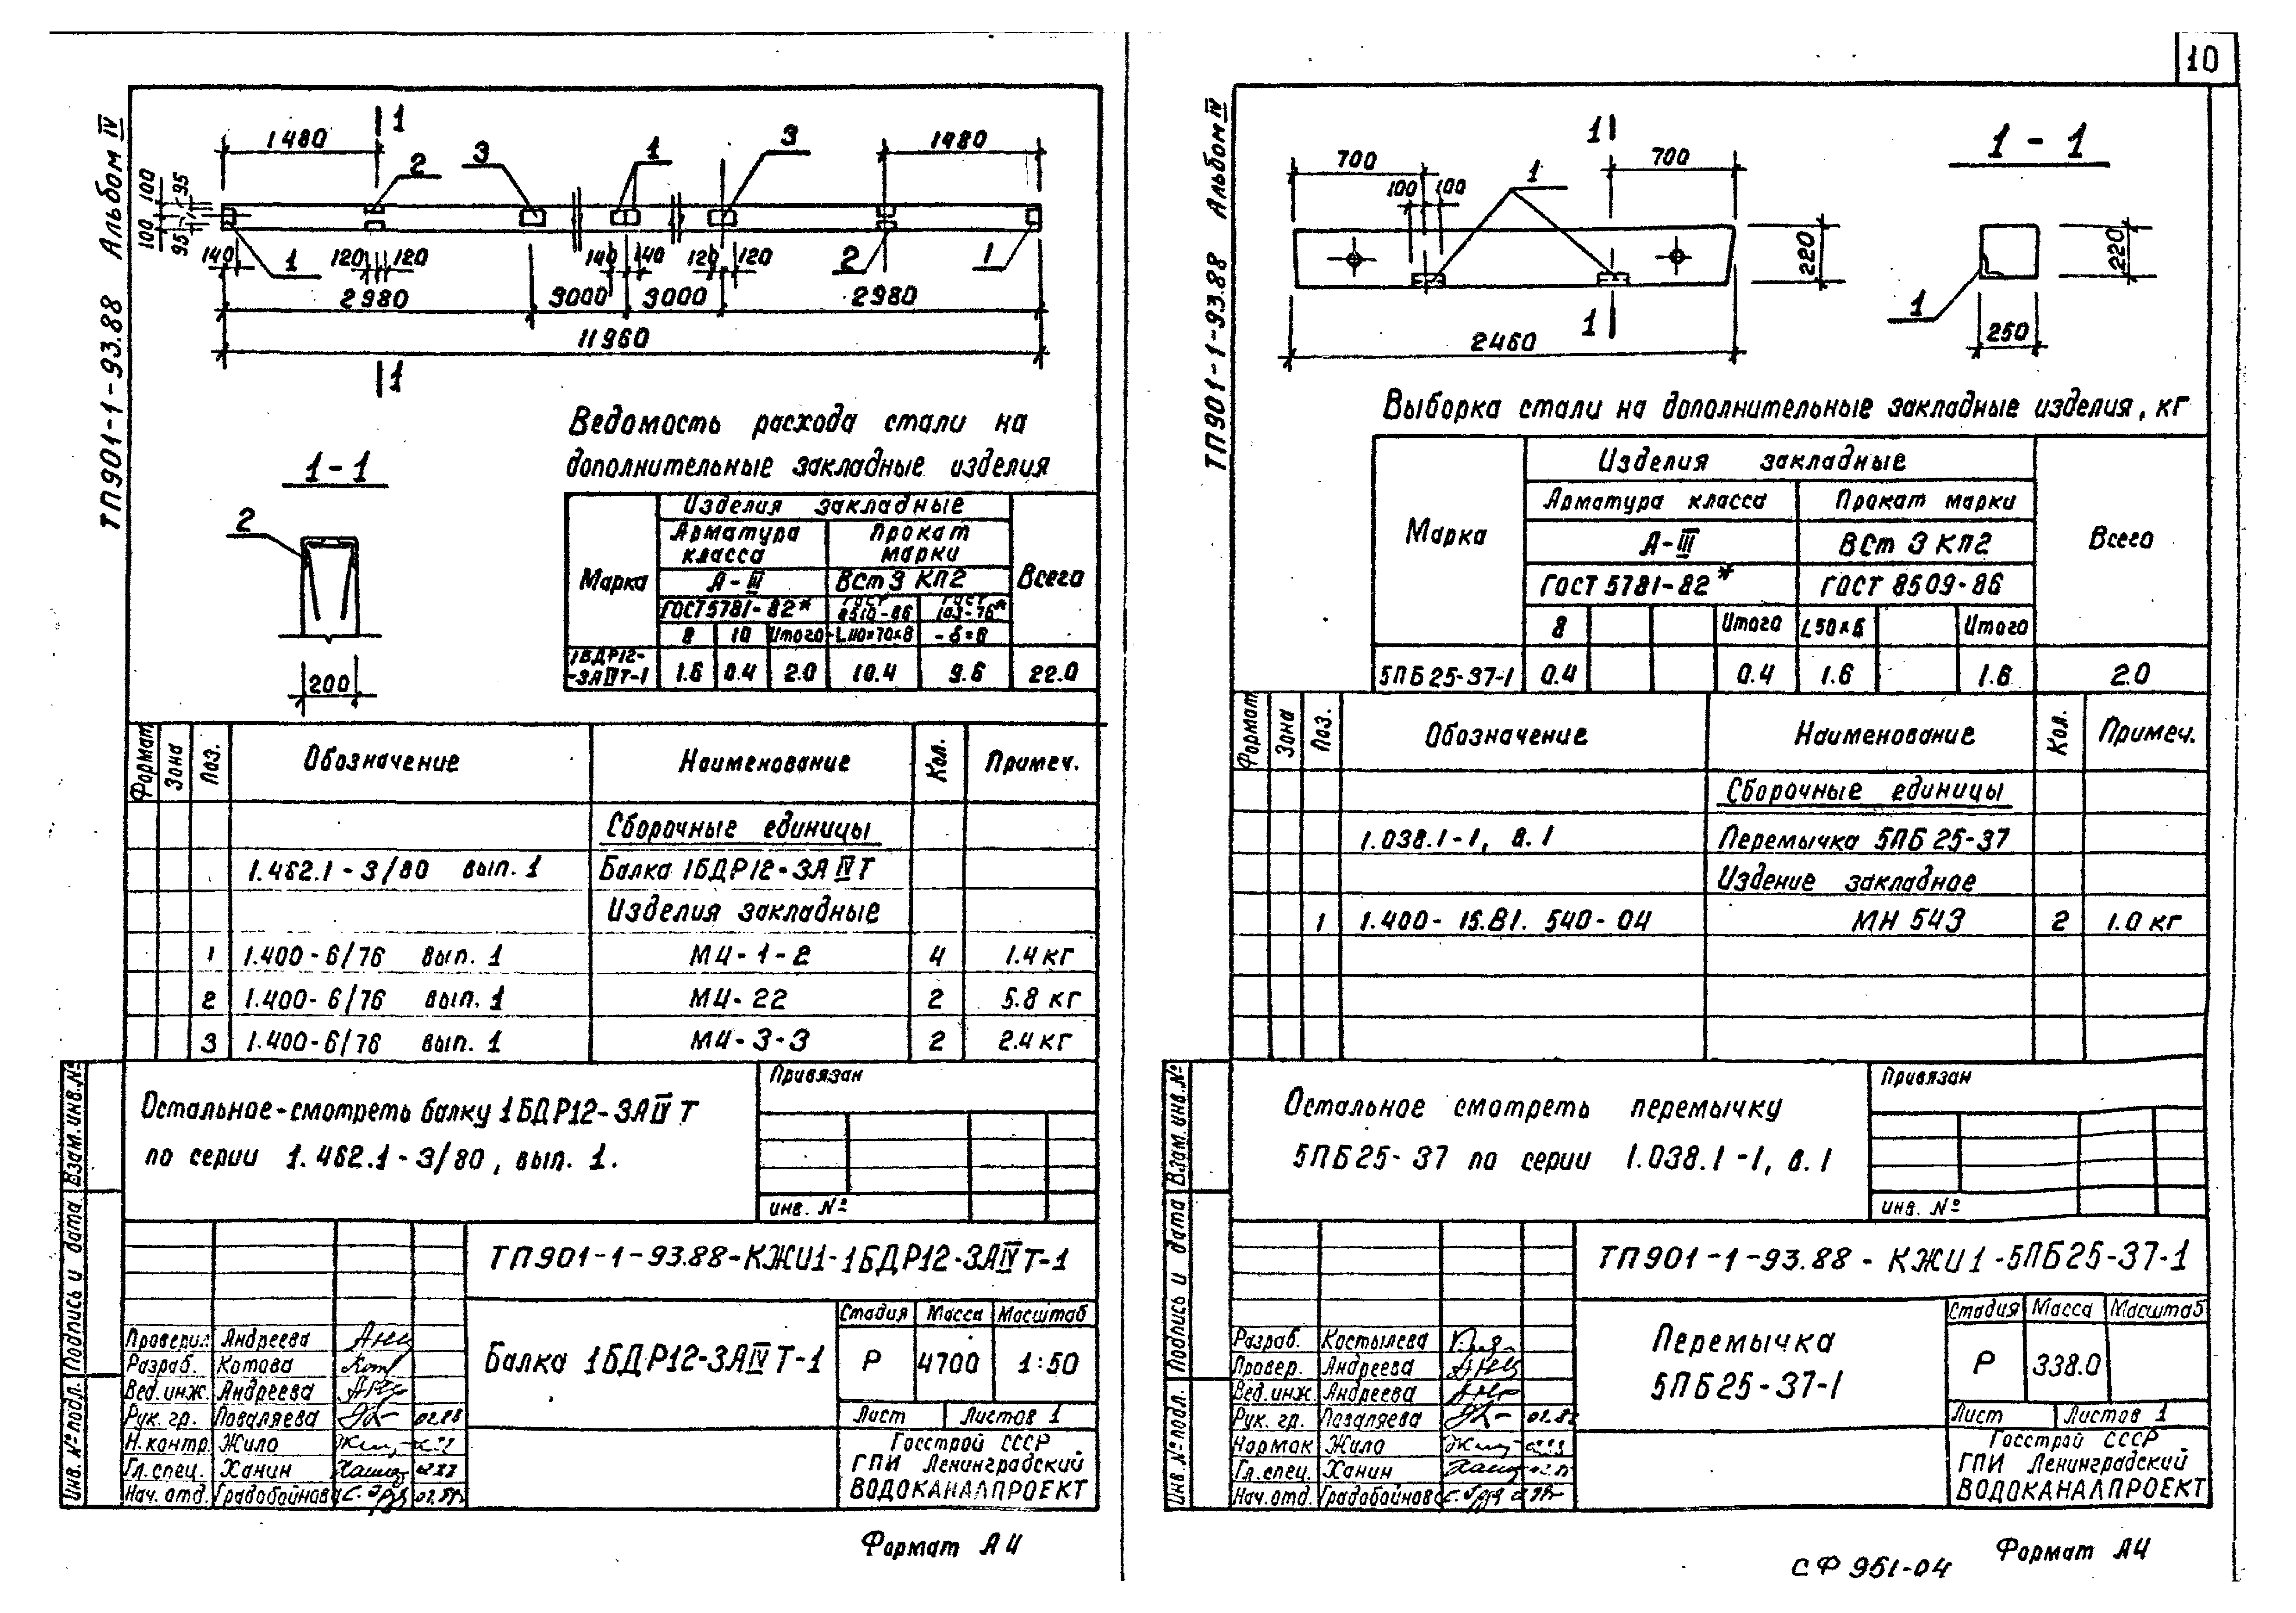 10
ТП901-1-93.88 Альбом IV
1
1480
2
3
1
3
1480
100
95
100
95
140
1
120
120
140
140
120
120
2
1
2980
3000
3000
2980
11960
1
1-1
2
200
Ведомость расхода стали на
дополнительные закладные изделия
Марка
Изделия закладные
Всего
Арматура класса
Прокат марки
А-III
ВСт3 КП2
ГОСТ5781-82*
ГОСТ 8510-86
ГОСТ 103-76*
8 10 Итого L110×70×8 -δ=8
1БДР12-3АIVТ-1 1.6 0.4 2.0 10.4 9.6 22.0
Формат Зона Поз. Обозначение Наименование Кол. Примеч.
Сборочные единицы
1.462.1-3/80 вып. 1 Балка 1БДР12-3АIVТ
Изделия закладные
1 1.400-6/76 вып. 1 М4-1-2 4 1.4 кг
2 1.400-6/76 вып. 1 М4-22 2 5.8 кг
3 1.400-6/76 вып. 1 М4-3-3 2 2.4 кг
Остальное-смотреть балку 1БДР12-3АIVТ
по серии 1.462.1-3/80, вып. 1.
Привязан
инв. №
Инв. № подл. Подпись и дата Взам. инв. №
ТП901-1-93.88-КЖИ1-1БДР12-3АIVТ-1
Балка 1БДР12-3АIVТ-1
Стадия Масса Масштаб
Р 4700 1:50
Лист Листов 1
Проверил Андреева
Разраб. Котова
Вед. инж. Андреева
Рук. гр. Поваляева 02.88
Н.контр. Жило
Гл.спец. Ханин
Нач. отд. Градобойнова
Госстрой СССР
ГПИ Ленинградский
ВОДОКАНАЛПРОЕКТ
Формат А4
ТП901-1-93.88 Альбом IV
1
700
700
100
100
1
220
2460
1
1-1
220
1
250
Выборка стали на дополнительные закладные изделия, кг
Марка
Изделия закладные
Всего
Арматура класса
Прокат марки
А-III
ВСт 3 КП2
ГОСТ 5781-82*
ГОСТ 8509-86
8 Итого L50×6 Итого
5ПБ25-37-1 0.4 0.4 1.6 1.6 2.0
Формат Зона Поз. Обозначение Наименование Кол. Примеч.
Сборочные единицы
1.038.1-1, в. 1 Перемычка 5ПБ 25-37
Издение закладное
1 1.400-15.В1. 540-04 МН 543 2 1.0 кг
Остальное смотреть перемычку
5ПБ25-37 по серии 1.038.1-1, в. 1
Привязан
инв. №
Инв. № подл. Подпись и дата Взам. инв. №
ТП901-1-93.88-КЖИ1-5ПБ25-37-1
Перемычка
5ПБ25-37-1
Стадия Масса Масштаб
Р 338.0
Лист Листов 1
Разраб. Костылева
Провер. Андреева
Вед. инж. Андреева
Рук. гр. Поваляева
Нормак Жило
Гл.спец. Ханин
Нач. отд. Градобойнова
Госстрой СССР
ГПИ Ленинградский
ВОДОКАНАЛПРОЕКТ
Формат А4
СФ 951-04